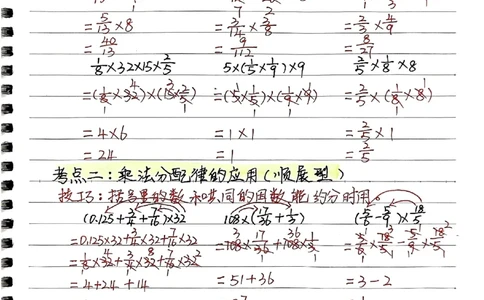 =5/13×8 =3/14×3/8 =2/3×4/9
=40/13 =9/112 =8/27
1/8×32×15×2/5 5×(1/5×1/9)×9 2/5×1/8×8
=(1/8×32)×(15×2/5) =(5×1/5)×(1/9×9) =2/5×(1/8×8)
=4×6 =1×1 =2/5×1
=24 =1 =2/5
考点二:乘法分配律的应用(顺展型)
技巧:括号里的数 共同的因数,能约分时用。
(0.125+3/4+7/16)×32 108×(17/36+1/3) (5/6-5/9)×18/5
=0.125×32+3/4×32+7/16×32 =108×17/36+108×1/3 =5/6×18/5-5/9×18/5
=1/8×32+3/4×32+7/16×32
=4+24+14 =51+36 =3-2